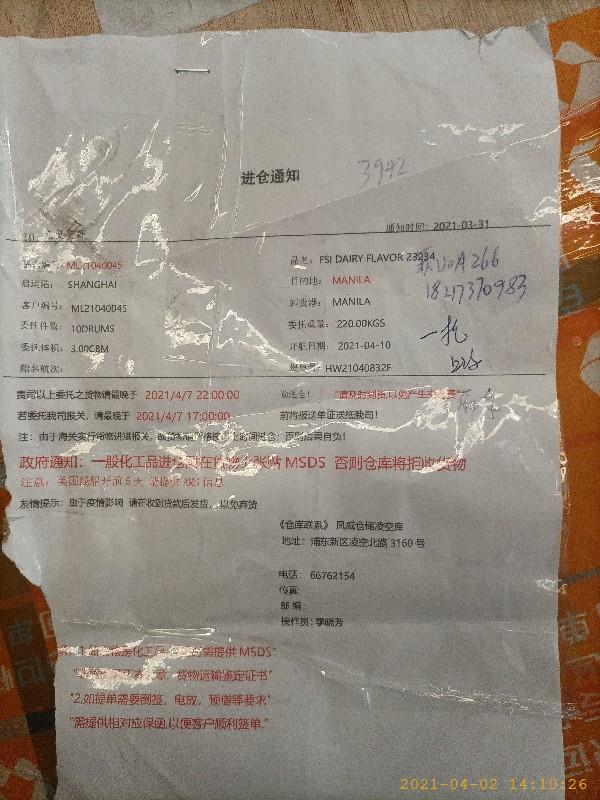 进仓通知
3942
TO:
通知时间: 2021-03-31
ML21040045
品名: FSI DAIRY FLAVOR 23234
启运站: SHANGHAI
目的地: MANILA
A266
18217370983
客户编号: ML21040045
卸货港: MANILA
委托件数: 10DRUMS
委托重量: 220.00KGS
一托
委托体积: 3.00CBM
开航日期: 2021-04-10
船名航次:
HW21040832F
贵司以上委托之货物请最晚于 2021/4/7 22:00:00
若委托我司报关, 请最晚于 2021/4/7 17:00:00 前将报送单证送抵我司!
注: 由于海关实行货物进港报关,
政府通知: 一般化工品进仓 MSDS 否则仓库将拒收货物
注意: 美国线船开前 5 天 信息
友情提示: 由于疫情影响 请在收到贷款后发货, 以免弃货
《仓库联系》 风威仓储凌空库
地址: 浦东新区凌空北路 3160 号
电话: 66762154
传真:
邮 编:
操作员: 李晓芳
需提供 MSDS"
货物运输鉴定证书"
"2.如提单需要倒签、电放、预借等要求"
"需提供相对应保函,以便客户顺利签单."
2021-04-02 14:10:26